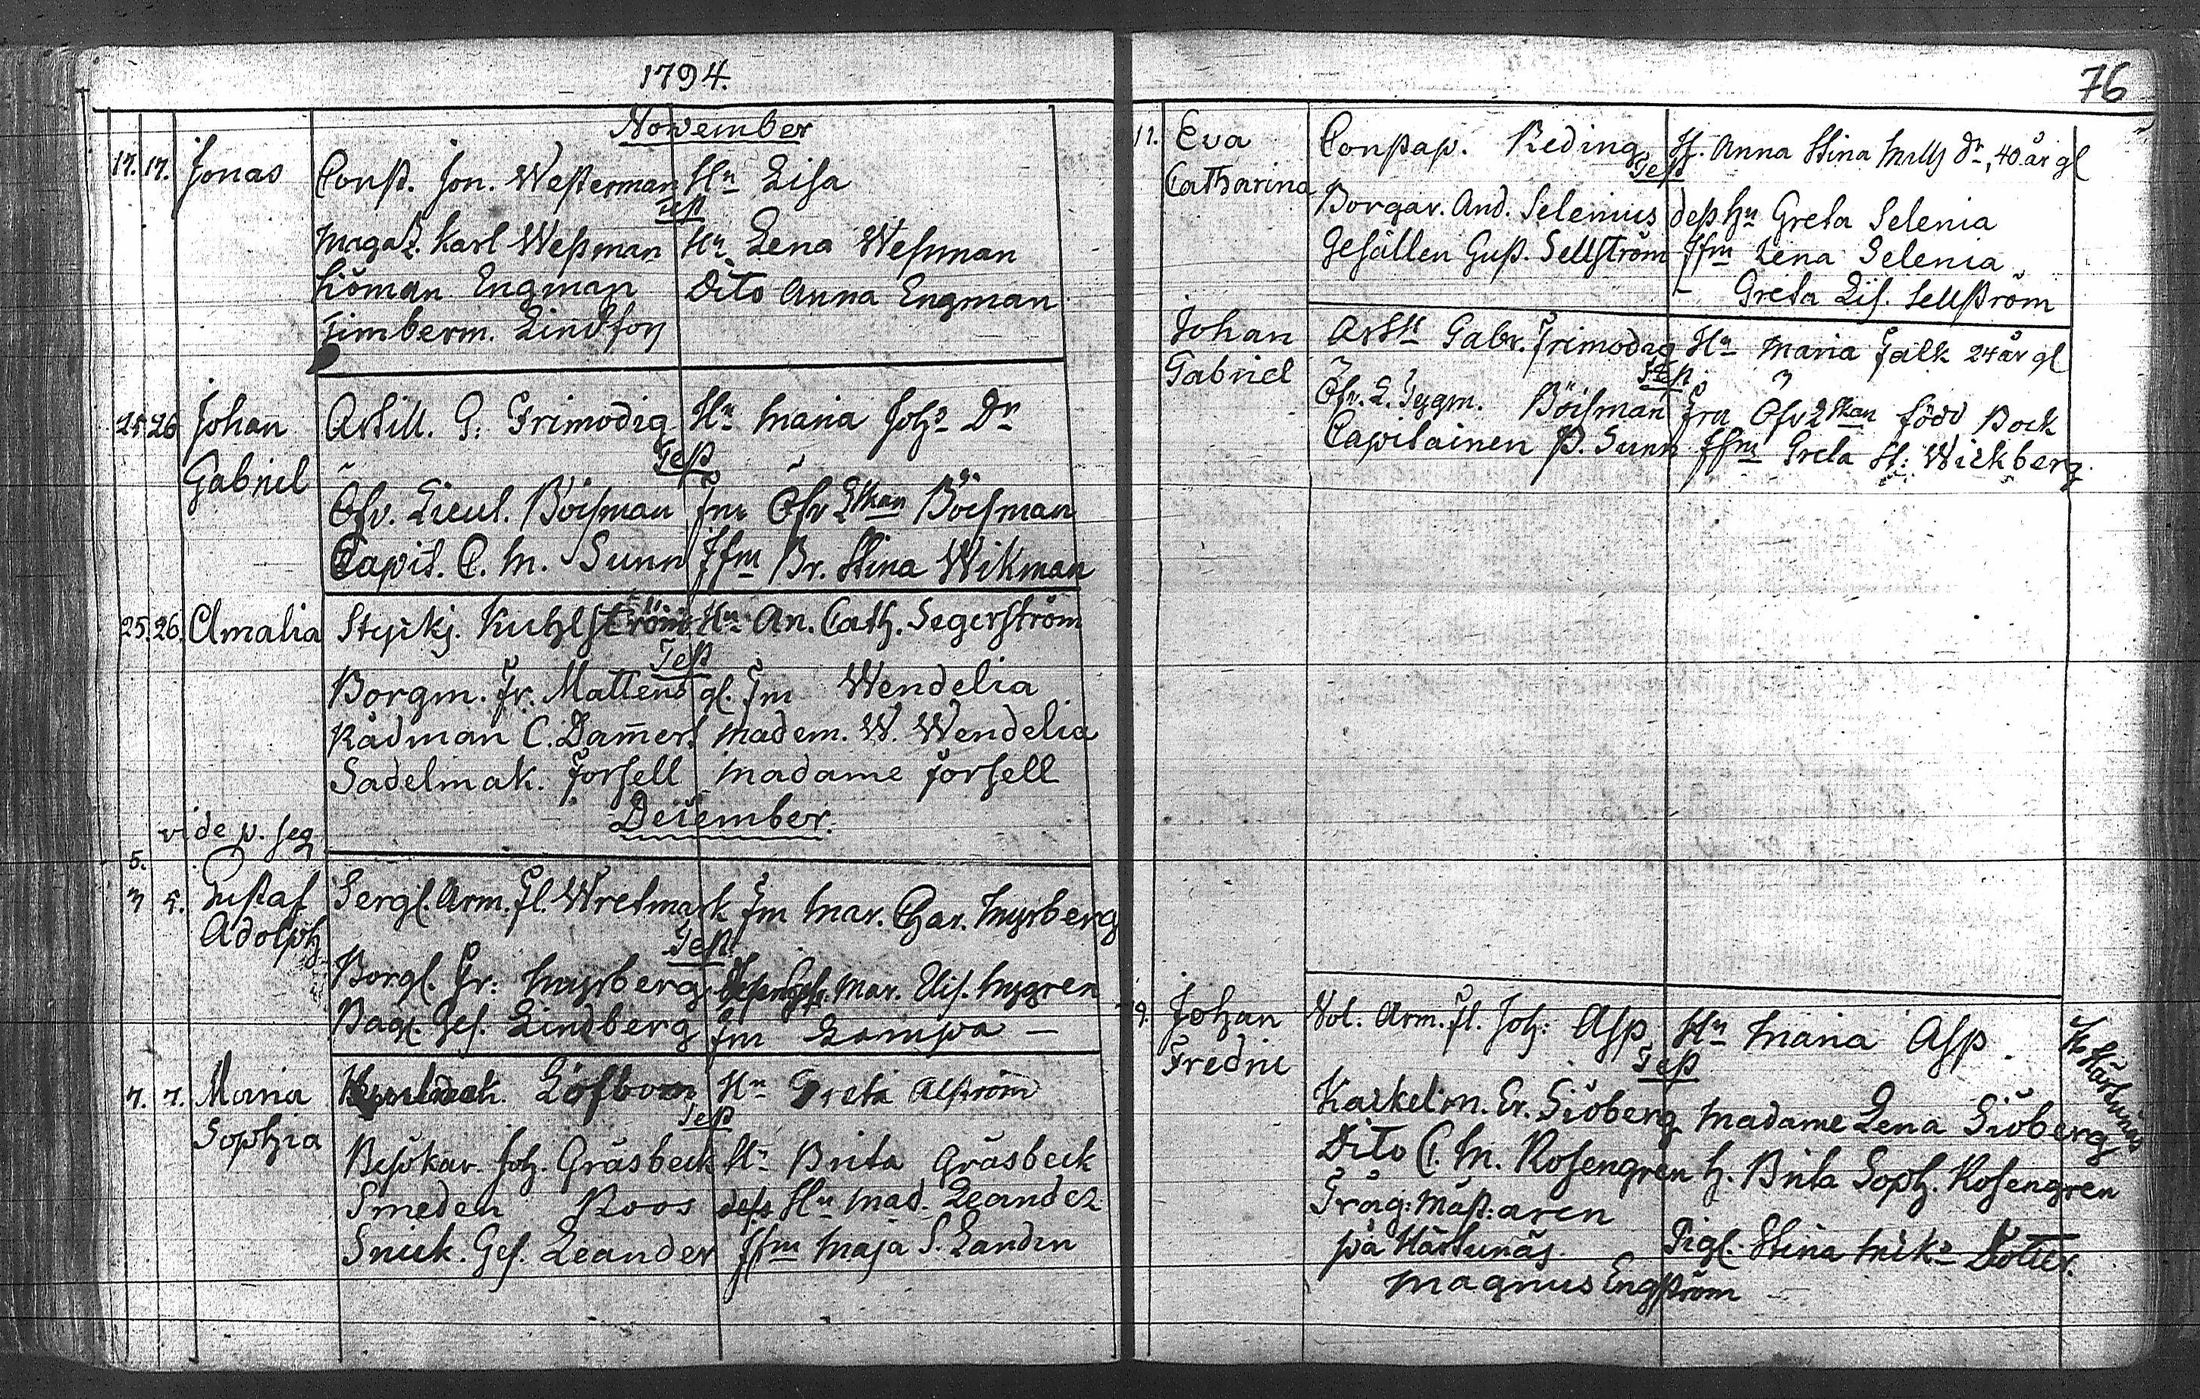 1794.
November
17. 17. Jonas Const. Jon. Westerman Hu Lisa
Test
Magaz. Karl Westman Hu Lena Westman
Enqman Dito Anna Enqman
Timberm. Lindfors
25 26 Johan Gabriel Artill. G: Frimodig Hu Maria Johs Dr
Test
Öfv. Lieut. Böisman Fru Öfv Ltskan Böisman
Capit. C. M. Sunn Jfru Br. Stina Wikman
25. 26. Amalia Styckj. Kuhlström Hu An. Cath. Segerström
Test
Borgm. Fr. Mattens gl. Fru Wendelia
Rådman C. Dam̄ert Madem. W. Wendelia
Sadelmak. Forsell Madame Forsell
December.
vide p. seq
5.
3 5. Gustaf Adolph Serg. Arm. fl. Wretmark Fru Mar. Char. Myrberg
Test
Borg. Gr: Myrberg Mar. Elis. Nygren
Bag. Ges. Lindberg Fru Lampa —
7. 7. Maria Sophia Löfbom Hu Greta Alström
Test
Besökar. Joh. Gräsbeck Hu Brita Gräsbeck
Smeden Roos dess Hu Mad. Leander
Snick. Ges. Leander Jfru Maja S. Landin
76
11. Eva Catharina Constap. Reding H. Anna Stina Matts Dr, 40 år gl
Test
Borgar. And. Selenius dess Hu Greta Selenia
Gesällen Gust. Sellström Jfru Lena Selenia
– Greta Lis. Sellström
Johan Gabriel Artll Gabr. Frimodig Hu Maria Falk 24 år gl
Test
Öfv. L. Tygm. Böisman Fru Öfv Ltskan född Bock
Capitainen P. Sunn Jfru Greta H: Wickberg
9. Johan Fredric Vol: Arm. fl. Joh: Asp Hu Maria Asp
Test
Kackelm. Er. Siöberg Madame Lena Siöberg
Dito C. M. Rosengren H. Brita Soph. Rosengren
Träg: Mäst:aren
på Härtunäs. Pig. Stina Mick: Dotter.
Magnus Engström